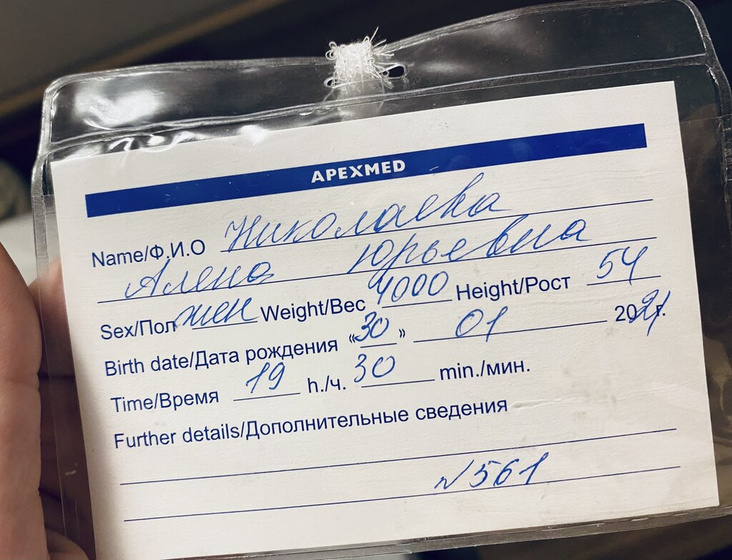 APEXMED
Name/Ф.И.О Николаева
Алена Юрьевна
Sex/Пол жен Weight/Вес 4000 Height/Рост 54
Birth date/Дата рождения «30» 01 2021г.
Time/Время 19 h./ч. 30 min./мин.
Further details/Дополнительные сведения
№561